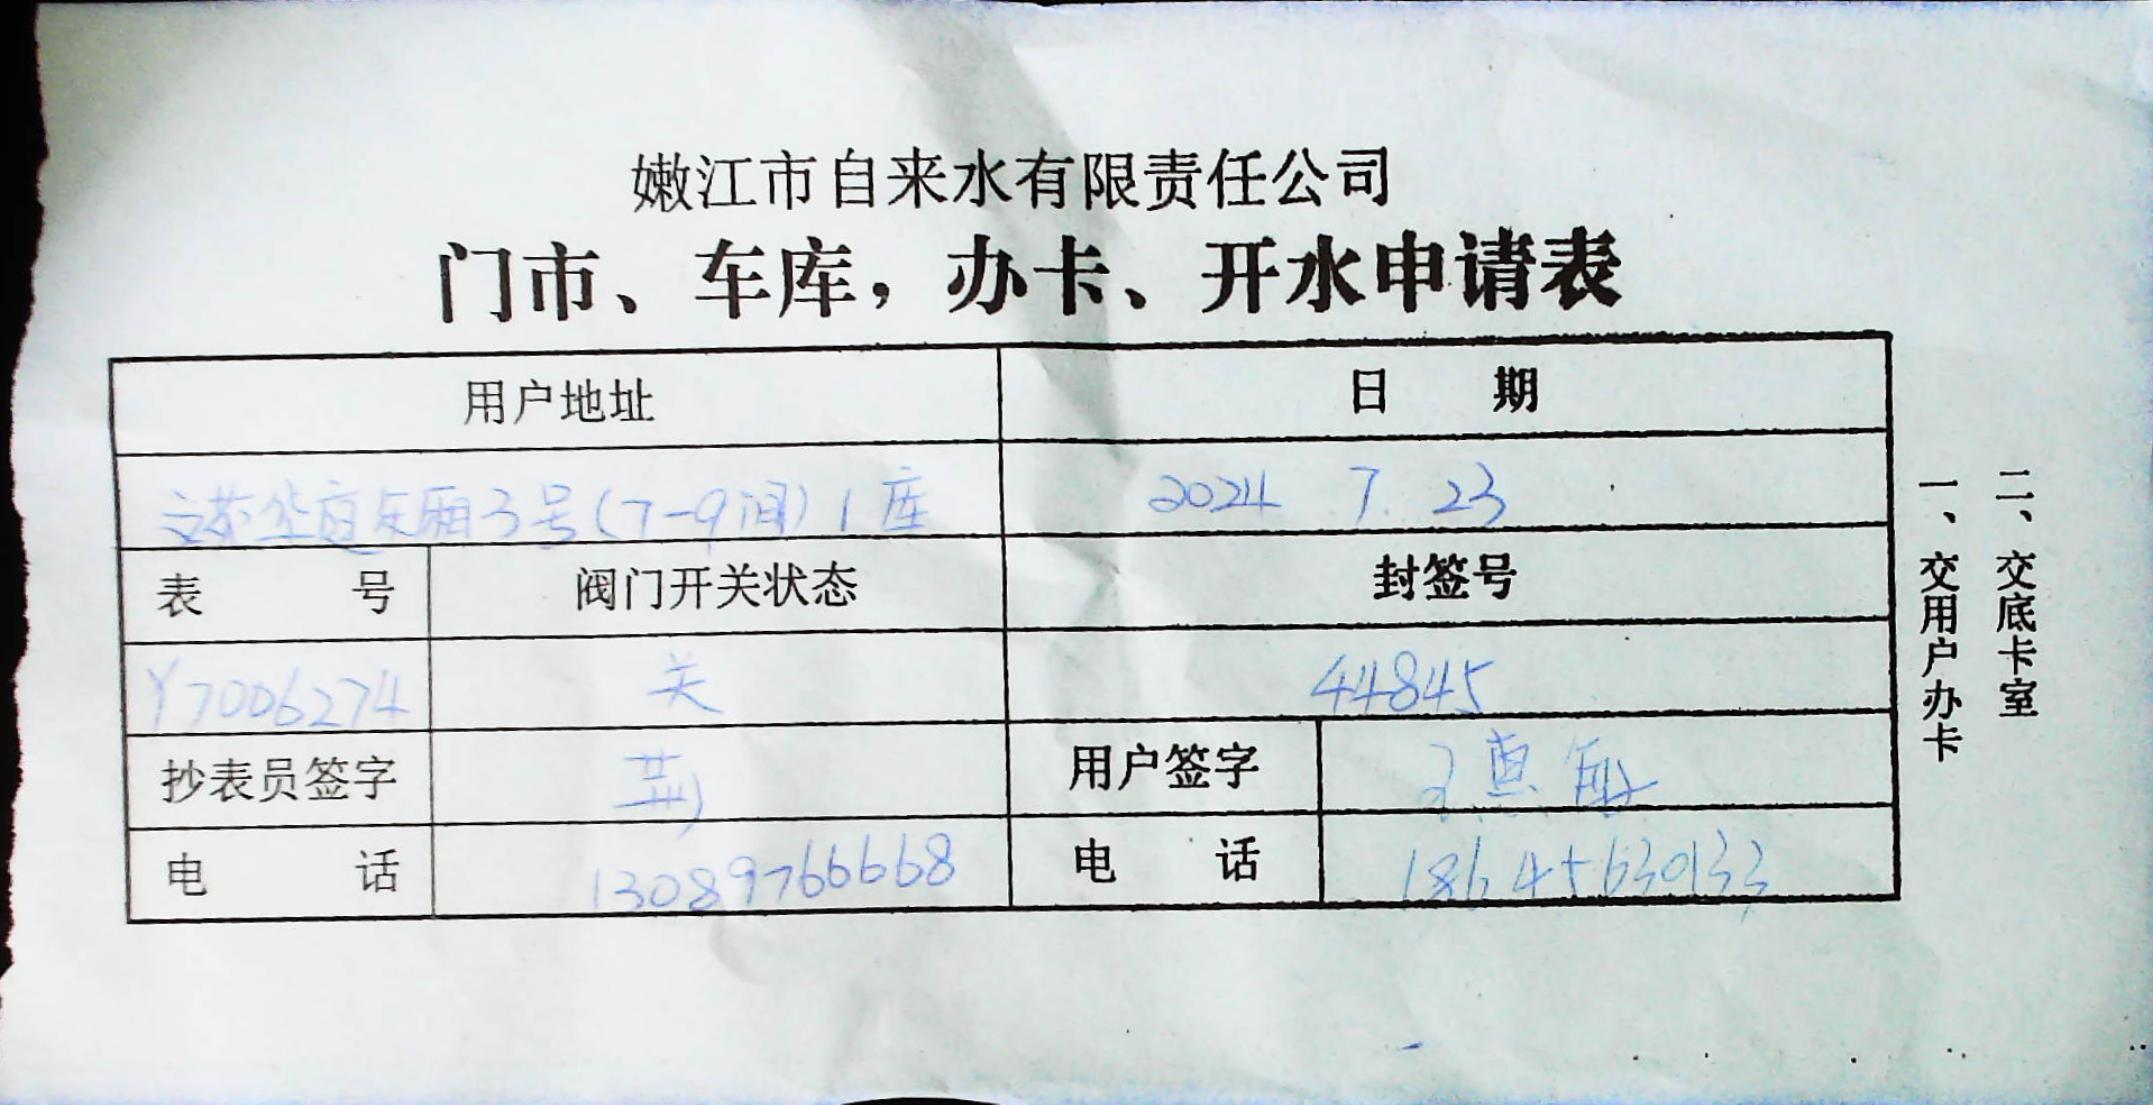 嫩江市自来水有限责任公司
门市、车库，办卡、开水申请表
用户地址 日 期
文苑华庭东厢3号(7-9间)1库 2024 7.23
表 号 阀门开关状态 封签号
Y7006274 关 44845
抄表员签字 用户签字
电 话 13089766668 电 话 18645630133
一、交用户办卡
二、交底卡室